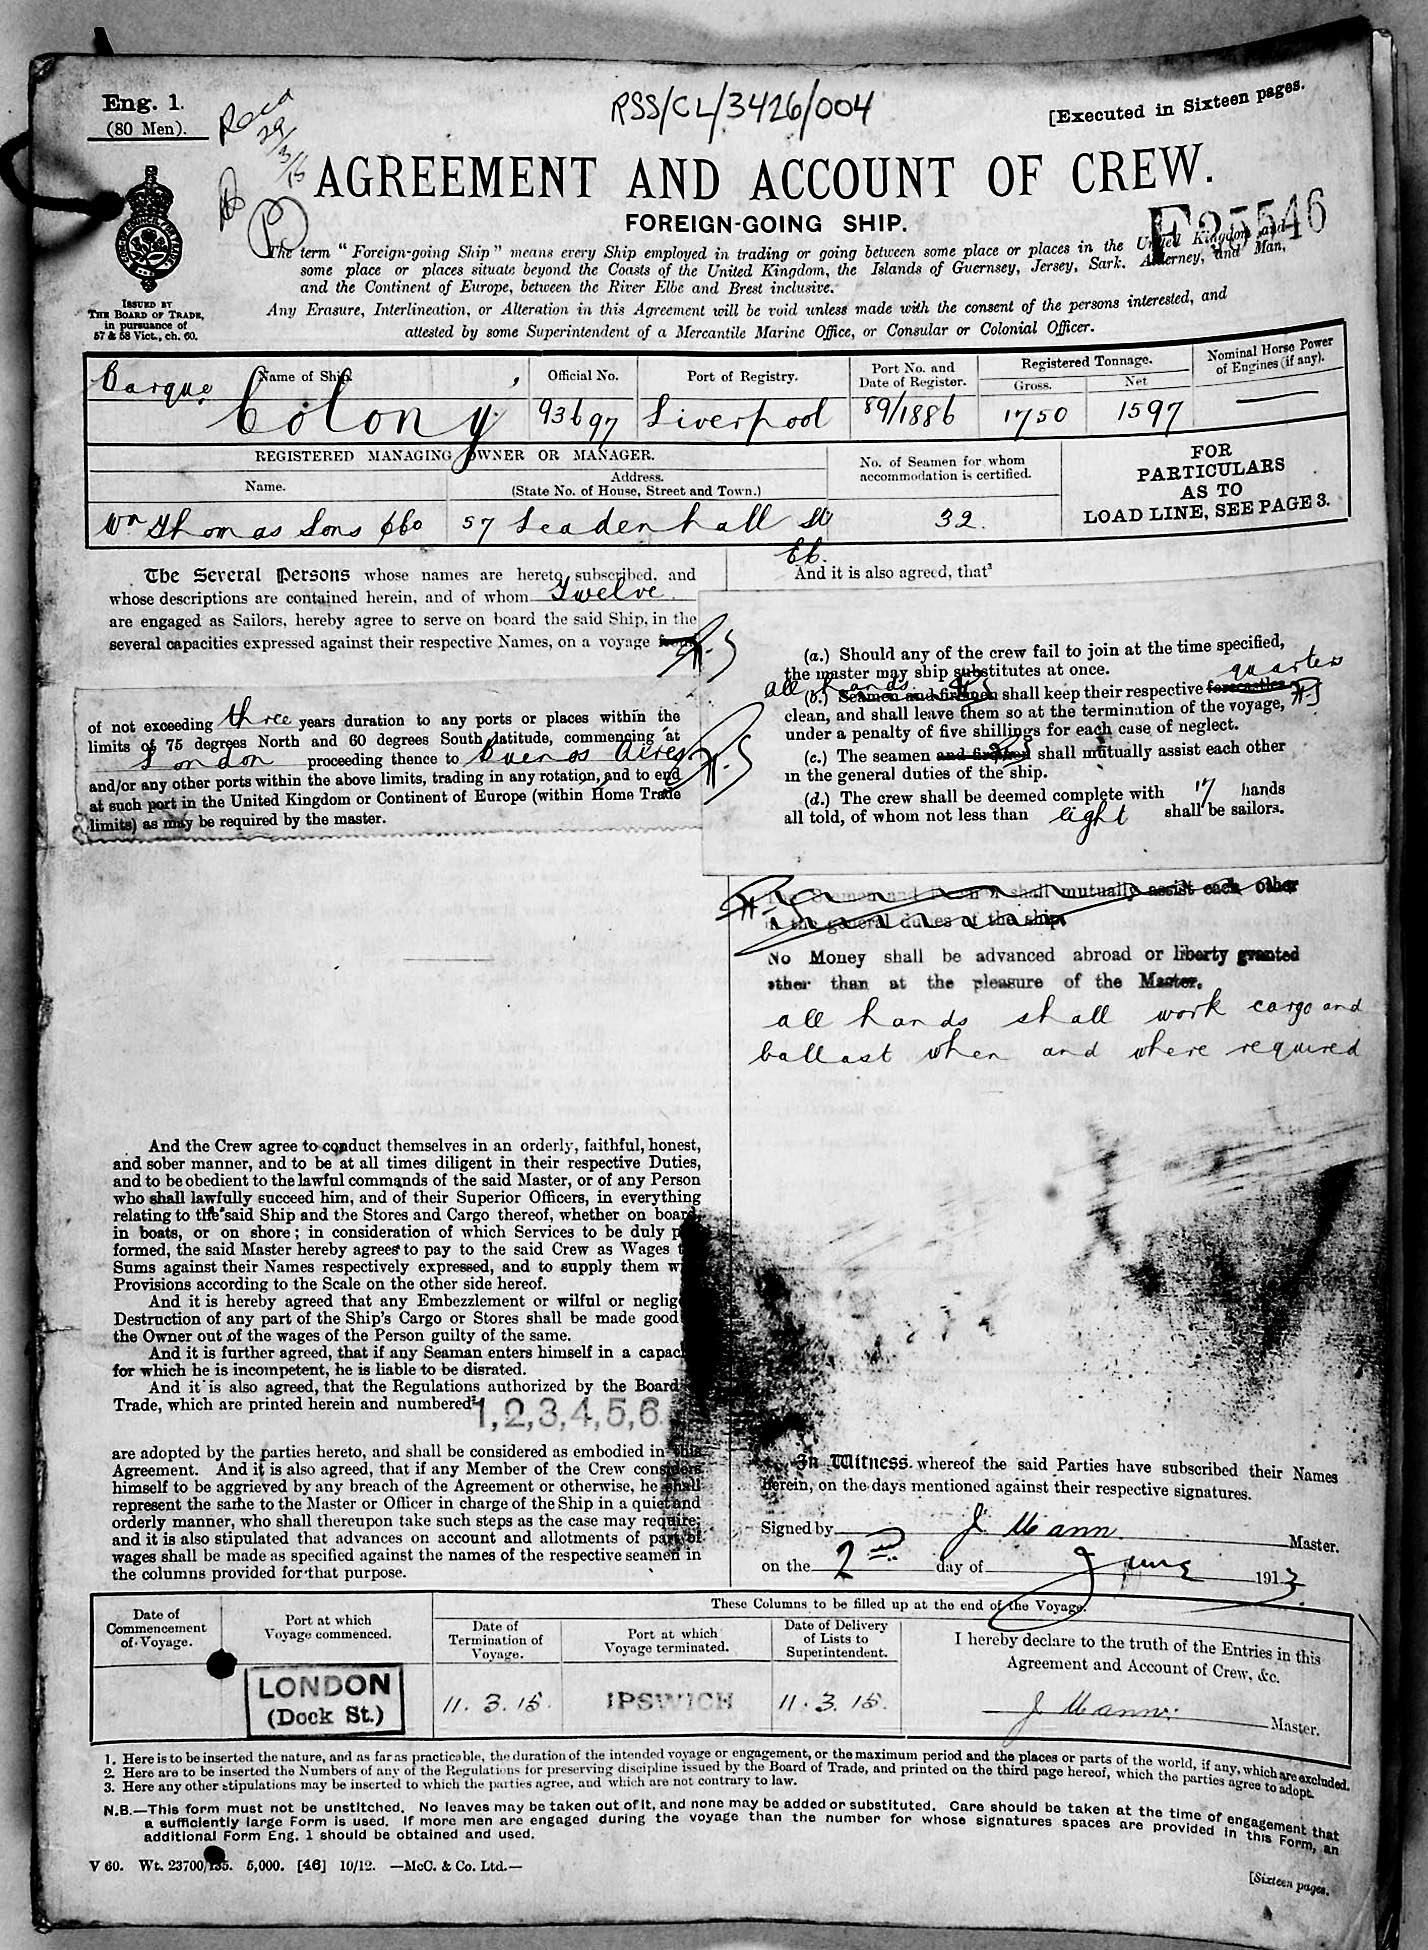 Eng. 1.
(80 Men).
Recd
29/3/15
RSS/CL/3426/004
[Executed in Sixteen pages.
AGREEMENT AND ACCOUNT OF CREW.
FOREIGN-GOING SHIP.
F 25546
ISSUED BY
THE BOARD OF TRADE,
in pursuance of
57 & 58 Vict., ch. 60.
The term "Foreign-going Ship" means every Ship employed in trading or going between some place or places in the United Kingdom, and
some place or places situate beyond the Coasts of the United Kingdom, the Islands of Guernsey, Jersey, Sark, Alderney, and Man,
and the Continent of Europe, between the River Elbe and Brest inclusive.
Any Erasure, Interlineation, or Alteration in this Agreement will be void unless made with the consent of the persons interested, and
attested by some Superintendent of a Mercantile Marine Office, or Consular or Colonial Officer.
Name of Ship. Official No. Port of Registry. Port No. and Date of Register. Registered Tonnage. Gross. Net Nominal Horse Power of Engines (if any).
Barque Colony 93697 Liverpool 89/1886 1750 1597 —
REGISTERED MANAGING OWNER OR MANAGER.
Name. Address. (State No. of House, Street and Town.)
No. of Seamen for whom accommodation is certified.
FOR PARTICULARS AS TO LOAD LINE, SEE PAGE 3.
Wm Thomas Sons & Co 57 Leadenhall St 32.
EC.
The Several Persons whose names are hereto subscribed, and
whose descriptions are contained herein, and of whom Twelve
are engaged as Sailors, hereby agree to serve on board the said Ship, in the
several capacities expressed against their respective Names, on a voyage from
of not exceeding three years duration to any ports or places within the
limits of 75 degrees North and 60 degrees South latitude, commencing at
London proceeding thence to Buenos Aires
and/or any other ports within the above limits, trading in any rotation, and to end
at such port in the United Kingdom or Continent of Europe (within Home Trade
limits) as may be required by the master.
And the Crew agree to conduct themselves in an orderly, faithful, honest,
and sober manner, and to be at all times diligent in their respective Duties,
and to be obedient to the lawful commands of the said Master, or of any Person
who shall lawfully succeed him, and of their Superior Officers, in everything
relating to the said Ship and the Stores and Cargo thereof, whether on board,
in boats, or on shore; in consideration of which Services to be duly p
formed, the said Master hereby agrees to pay to the said Crew as Wages t
Sums against their Names respectively expressed, and to supply them w
Provisions according to the Scale on the other side hereof.
And it is hereby agreed that any Embezzlement or wilful or neglig
Destruction of any part of the Ship's Cargo or Stores shall be made good
the Owner out of the wages of the Person guilty of the same.
And it is further agreed, that if any Seaman enters himself in a capac
for which he is incompetent, he is liable to be disrated.
And it is also agreed, that the Regulations authorized by the Board
Trade, which are printed herein and numbered² 1,2,3,4,5,6.
are adopted by the parties hereto, and shall be considered as embodied in this
Agreement. And it is also agreed, that if any Member of the Crew considers
himself to be aggrieved by any breach of the Agreement or otherwise, he shall
represent the same to the Master or Officer in charge of the Ship in a quiet and
orderly manner, who shall thereupon take such steps as the case may require;
and it is also stipulated that advances on account and allotments of part of
wages shall be made as specified against the names of the respective seamen in
the columns provided for that purpose.
And it is also agreed, that³
(a.) Should any of the crew fail to join at the time specified,
the master may ship substitutes at once.
all hands quarters
(b.) Seamen and firemen shall keep their respective forecastles
clean, and shall leave them so at the termination of the voyage,
under a penalty of five shillings for each case of neglect.
(c.) The seamen and firemen shall mutually assist each other
in the general duties of the ship.
(d.) The crew shall be deemed complete with 17 hands
all told, of whom not less than eight shall be sailors.
The Seamen and Firemen shall mutually assist each other
in the general duties of the ship.
No Money shall be advanced abroad or liberty granted
other than at the pleasure of the Master.
all hands shall work cargo and
ballast when and where required
In Witness whereof the said Parties have subscribed their Names
herein, on the days mentioned against their respective signatures.
Signed by J. Mann Master.
on the 2nd day of June 1913
Date of Commencement of Voyage. Port at which Voyage commenced.
These Columns to be filled up at the end of the Voyage.
Date of Termination of Voyage. Port at which Voyage terminated. Date of Delivery of Lists to Superintendent.
I hereby declare to the truth of the Entries in this
Agreement and Account of Crew, &c.
LONDON
(Dock St.)
11.3.15. IPSWICH 11.3.15.
J Mann Master.
1. Here is to be inserted the nature, and as far as practicable, the duration of the intended voyage or engagement, or the maximum period and the places or parts of the world, if any, which are excluded.
2. Here are to be inserted the Numbers of any of the Regulations for preserving discipline issued by the Board of Trade, and printed on the third page hereof, which the parties agree to adopt.
3. Here any other stipulations may be inserted to which the parties agree, and which are not contrary to law.
N.B.—This form must not be unstitched. No leaves may be taken out of it, and none may be added or substituted. Care should be taken at the time of engagement that
a sufficiently large Form is used. If more men are engaged during the voyage than the number for whose signatures spaces are provided in this Form, an
additional Form Eng. 1 should be obtained and used.
V 60. Wt. 23700/135. 5,000. [46] 10/12. —McC. & Co. Ltd.—
[Sixteen pages.